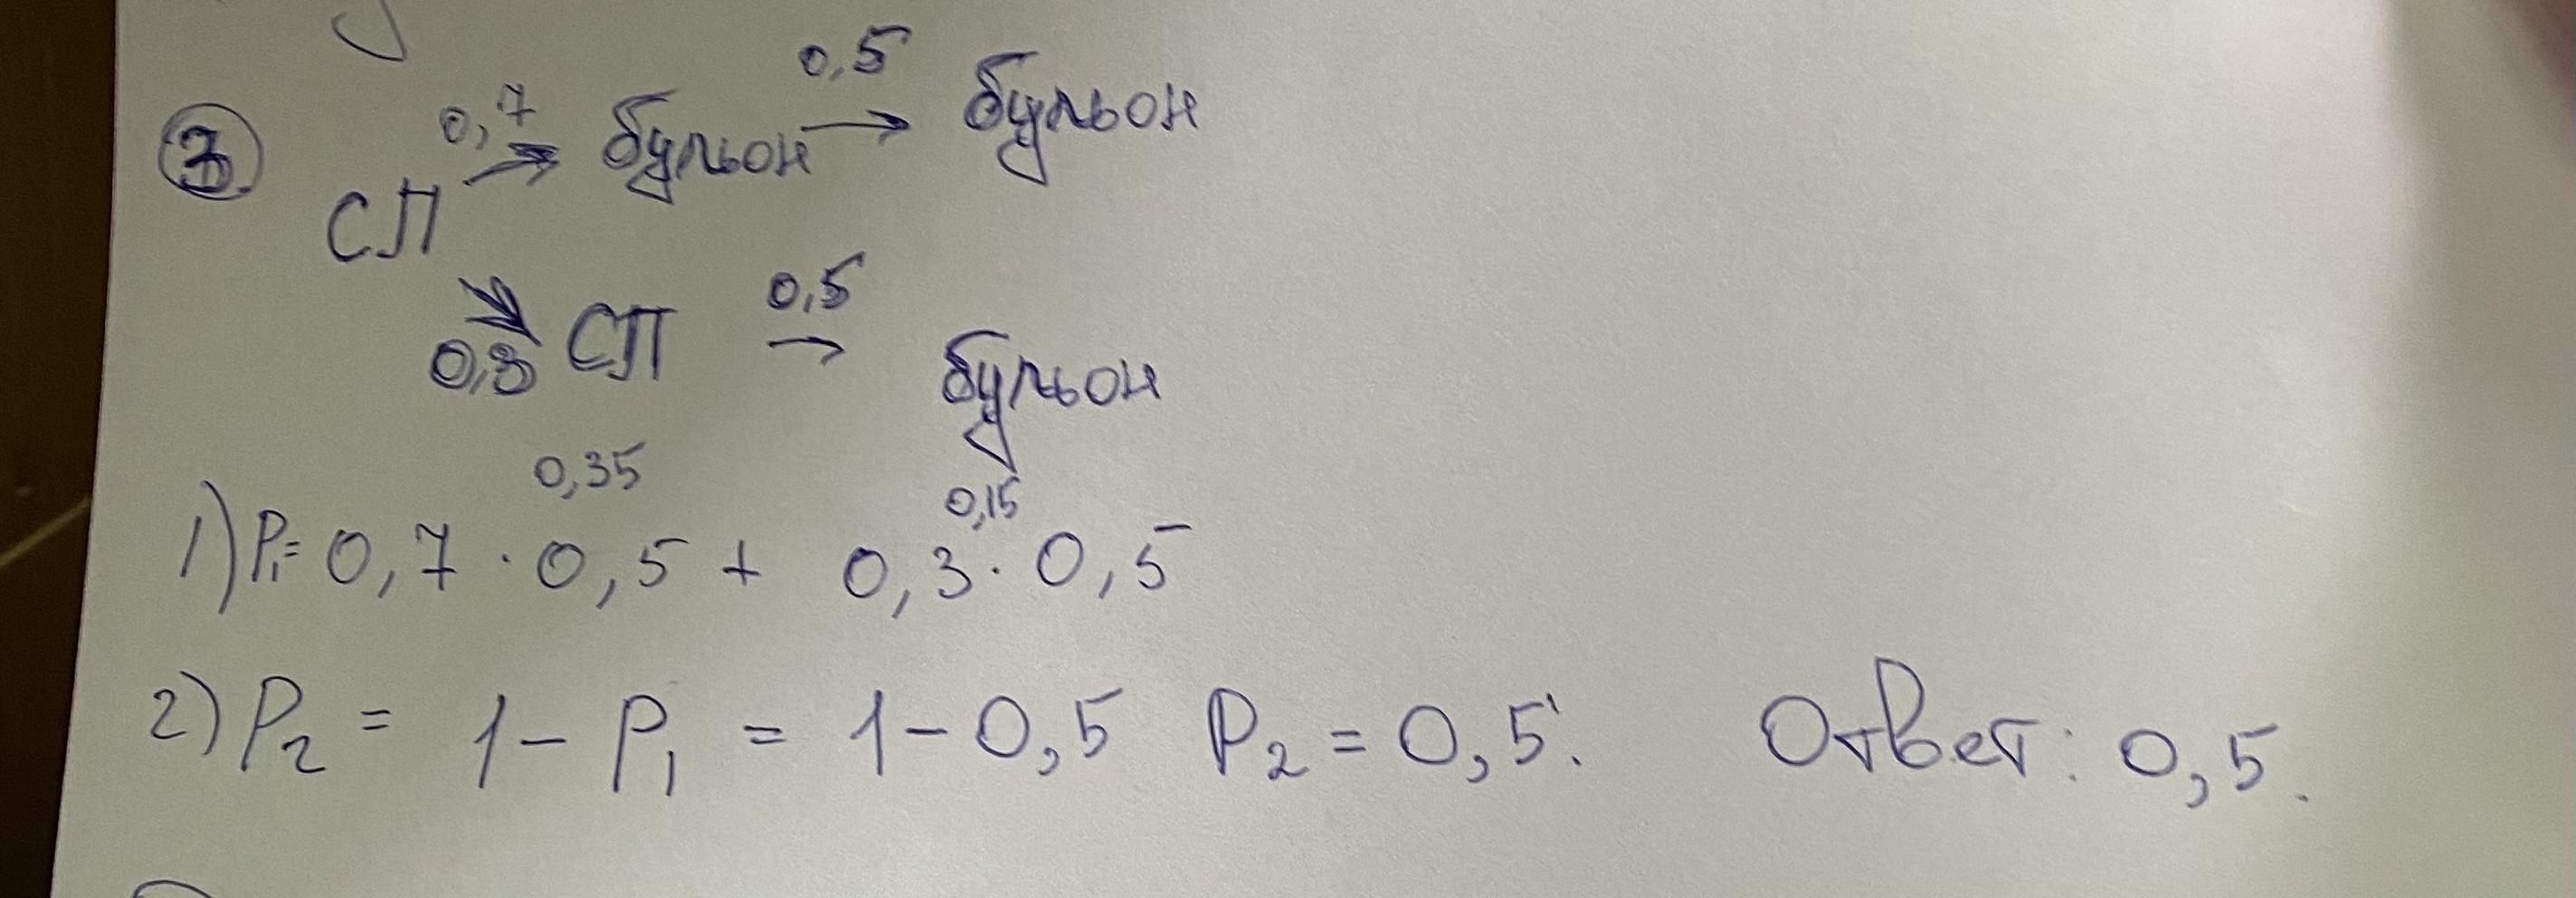 0,5
0,7
③ СП → бульон → бульон
0,5
0,3 СП → бульон
0,35 0,15
1) P₁= 0,7 · 0,5 + 0,3 · 0,5
2) P₂ = 1 – P₁ = 1 – 0,5 P₂ = 0,5. Ответ: 0,5.